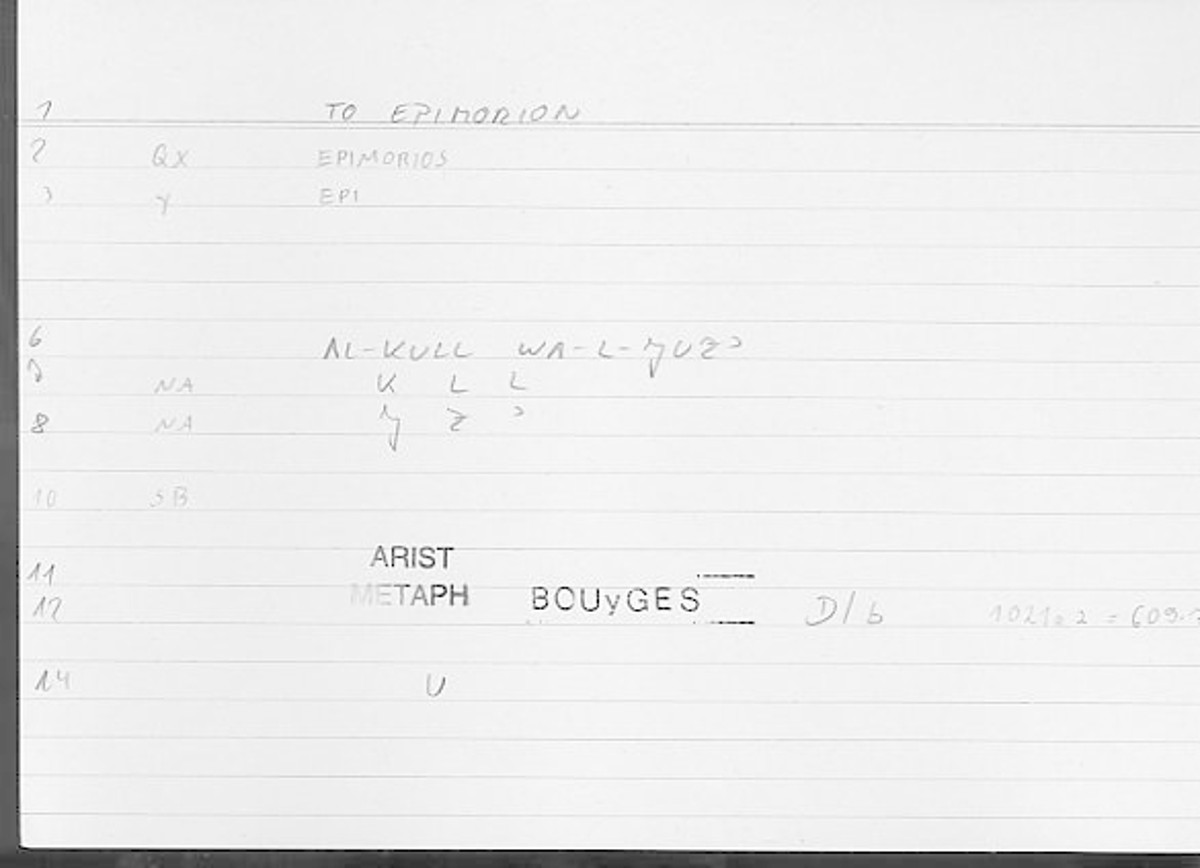 1 TO EPIMORION
2 QX EPIMORIOS
3 Y EPI
6 AL-KULL WA-L-ǧUZʾ
7 NA K L L
8 NA ǧ Z ʾ
10 SB
11 ARIST
12 METAPH BOUyGES D/b 1021a2 = 609.
14 U